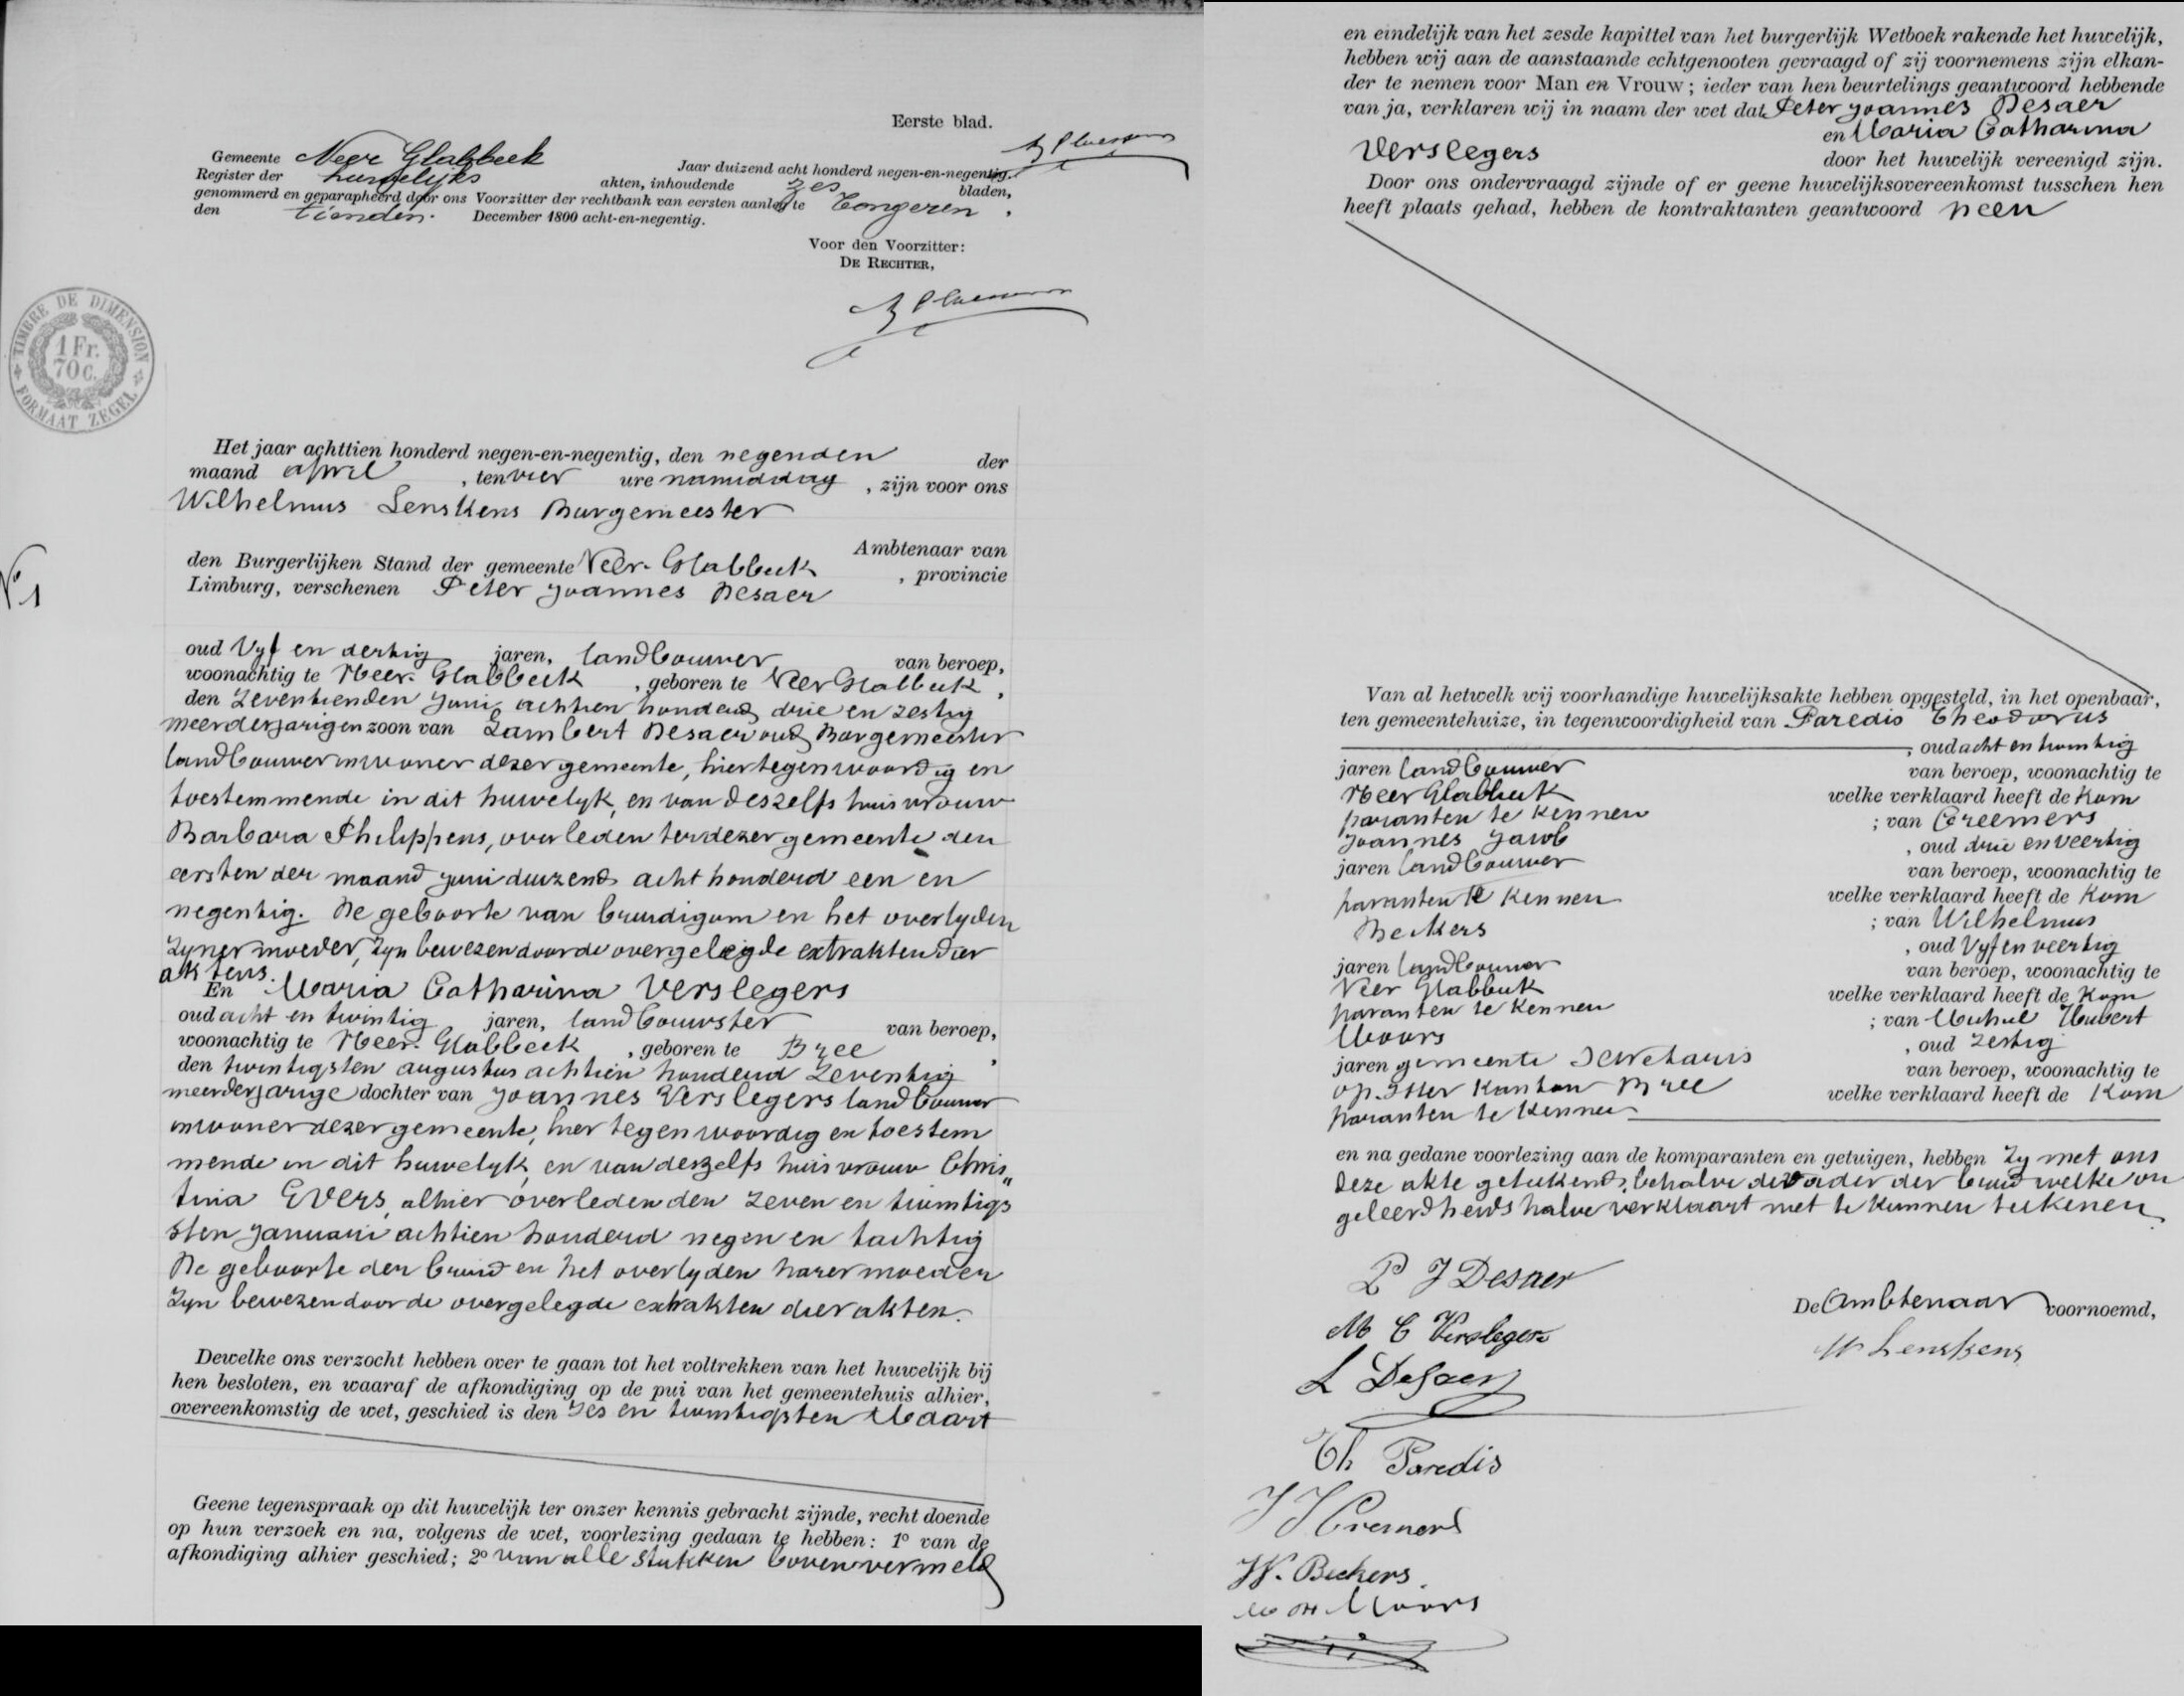 Eerste blad.
Gemeente Neer Glabbeek
Jaar duizend acht honderd negen-en-negentig.
Register der huwelyks akten, inhoudende zes bladen,
genommerd en geparapheerd door ons Voorzitter der rechtbank van eersten aanleg te Tongeren,
den tienden. December 1800 acht-en-negentig.
Voor den Voorzitter:
DE RECHTER,
TIMBRE DE DIMENSION
1 Fr.
70 C.
FORMAAT ZEGEL
Het jaar achttien honderd negen-en-negentig, den negenden der
maand april, ten vier ure namiddag, zijn voor ons
Wilhelmus Lenskens Burgemeester
Ambtenaar van
den Burgerlijken Stand der gemeente Neer-Glabbeek, provincie
Limburg, verschenen Peter Joannes Desaer
N° 1
oud Vyf en dertig jaren, landbouwer van beroep,
woonachtig te Neer-Glabbeek, geboren te Neer Glabbeek,
den zeventienden Juni achtien honderd drie en zestig
meerderjarigen zoon van Lambert Desaer oud Burgemeester
landbouwer inwoner dezer gemeente, hier tegenwoordig en
toestemmende in dit huwelyk, en van deszelfs huisvrouw
Barbara Philippens, overleden ter dezer gemeente den
eersten der maand juni duizend acht honderd een en
negentig. De geboorte van bruidigom en het overlyden
zyner moeder, zyn bewezen door de overgelegde extrakten dier
aktens.
En Maria Catharina Verslegers
oud acht en twintig jaren, landbouwster van beroep,
woonachtig te Neer-Glabbeek, geboren te Bree,
den twintigsten augustus achtien honderd zeventig
meerderjarige dochter van Joannes Verslegers landbouwer
inwoner dezer gemeente, hier tegenwoordig en toestem
mende in dit huwelyk, en van deszelfs huisvrouw Chris„
tina Evers, alhier overleden den zeven en twintigs
sten Januarii achtien honderd negen en tachtig
De geboorte der bruid en het overlyden harer moeder
zyn bewezen door de overgelegde extrakten dier akten.
Dewelke ons verzocht hebben over te gaan tot het voltrekken van het huwelijk bij
hen besloten, en waaraf de afkondiging op de pui van het gemeentehuis alhier,
overeenkomstig de wet, geschied is den zes en twintigsten Maart
Geene tegenspraak op dit huwelijk ter onzer kennis gebracht zijnde, recht doende
op hun verzoek en na, volgens de wet, voorlezing gedaan te hebben: 1° van de
afkondiging alhier geschied; 2° van alle stukken bovenvermeld
en eindelijk van het zesde kapittel van het burgerlijk Wetboek rakende het huwelijk,
hebben wij aan de aanstaande echtgenooten gevraagd of zij voornemens zijn elkan-
der te nemen voor Man en Vrouw; ieder van hen beurtelings geantwoord hebbende
van ja, verklaren wij in naam der wet dat Peter Joannes Desaer
en Maria Catharina
Verslegers door het huwelijk vereenigd zijn.
Door ons ondervraagd zijnde of er geene huwelijksovereenkomst tusschen hen
heeft plaats gehad, hebben de kontraktanten geantwoord neen
Van al hetwelk wij voorhandige huwelijksakte hebben opgesteld, in het openbaar,
ten gemeentehuize, in tegenwoordigheid van Paredis Theodorus
, oud acht en twintig
jaren landbouwer van beroep, woonachtig te
Neer Glabbeek welke verklaard heeft de Kom
paranten te kennen; van Creemers
Joannes Jacob, oud drie en veertig
jaren landbouwer van beroep, woonachtig te
welke verklaard heeft de Kom
paranten te kennen; van Wilhelmus
Beckers, oud Vyf en veertig
jaren landbouwer van beroep, woonachtig te
Neer Glabbeek welke verklaard heeft de Kom
paranten te kennen; van Michiel Hubert
Moors, oud zestig
jaren gemeente Sekretaris van beroep, woonachtig te
op-Itter Kanton Bree welke verklaard heeft de Kom
paranten te kennen
en na gedane voorlezing aan de komparanten en getuigen, hebben zy met ons
deze akte getekend, behalve de vader der bruid welke on
geleerdheids halve verklaart niet te kunnen teekenen
P J Desaer
De Ambtenaar voornoemd,
M C Verslegers
W Lenskens
L DeSaer
Th Paredis
J J Cremers
W. Beckers
M H Moors